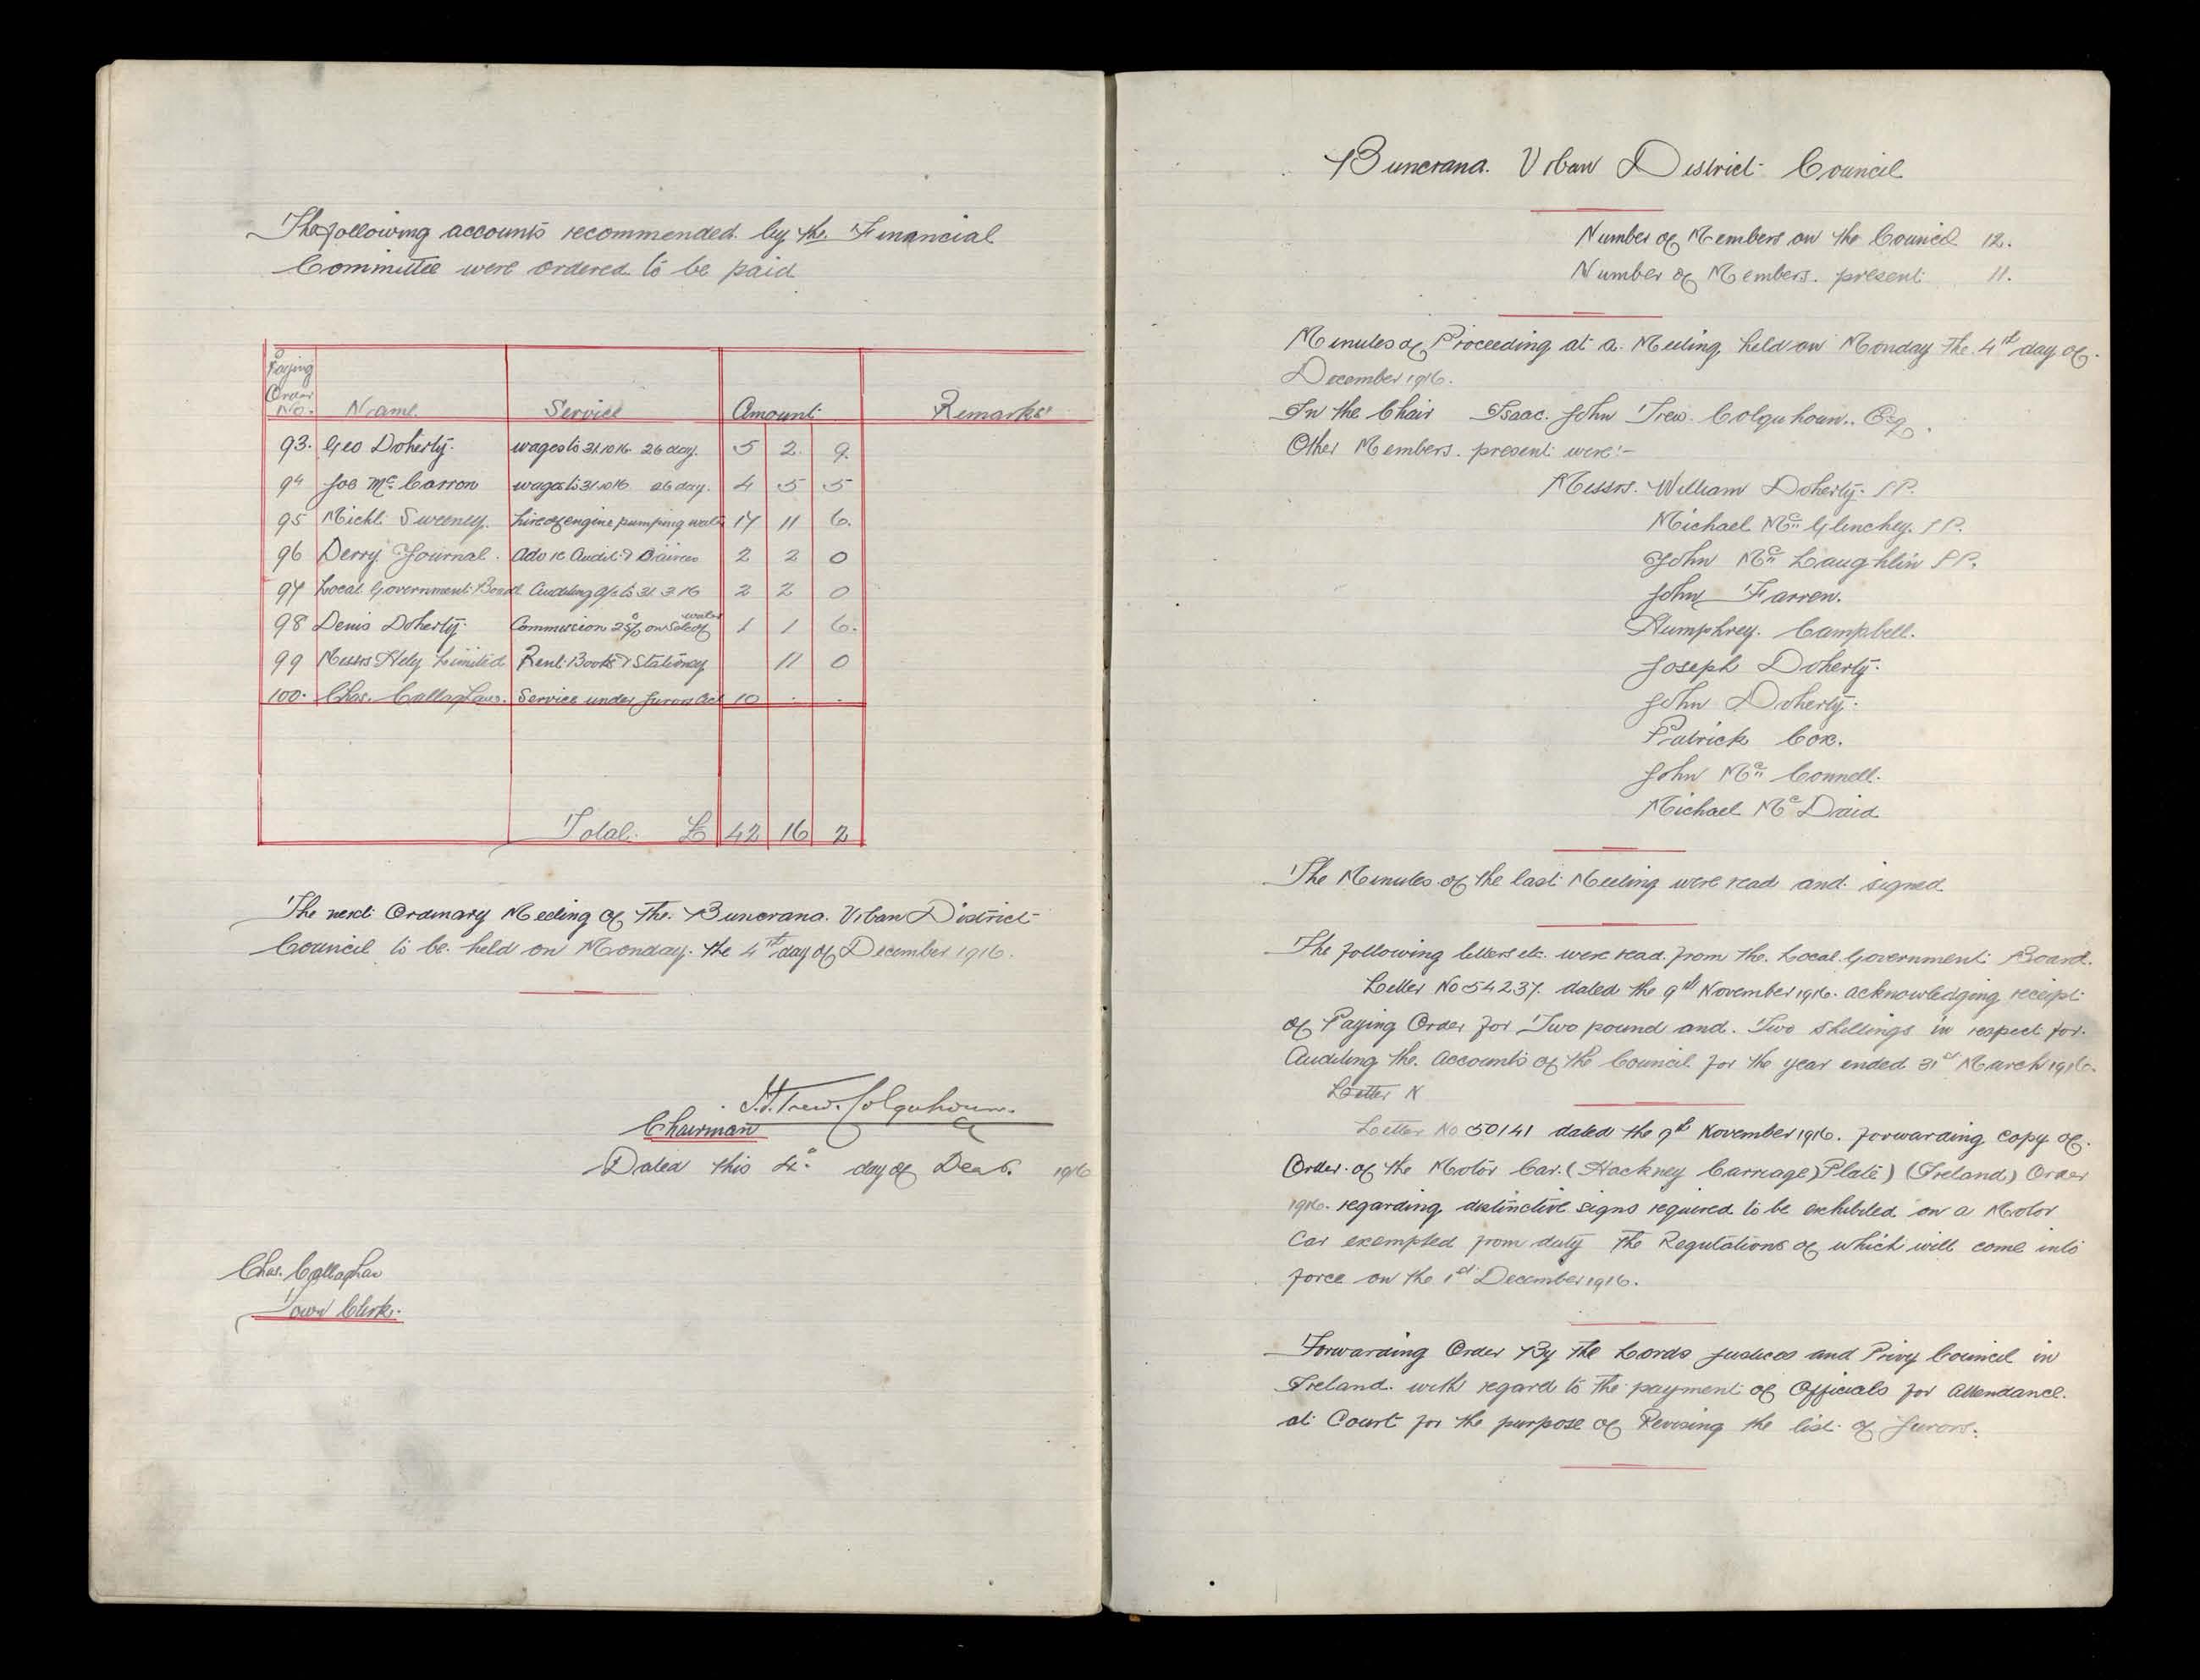 The following accounts recommended by the Financial
Committee were ordered to be paid
Paying Order No. Name Service Amount Remarks
93. Geo Doherty. wages to 31.10.16 26 day. 5 2 9.
94 Joe McCarron wages to 31.10.16 26 day. 4 5 5
95 Michl. Sweeney. hire of engine pumping water 17 11 6.
96 Derry Journal. Adv re Audit & 2 2 0
97 Local Government Board Auditing a/c to 31.3.16 2 2 0
98 Denis Doherty. Commission 25% on Sale of water 1 1 6.
99 Messrs Hely Limited Rent Books & Stationery 11 0
100. Chas. Callaghan. Service under Jurors Act 10 . .
Total. £ 42 16 2
The next Ordinary Meeting of the Buncrana Urban District
Council to be held on Monday. the 4th day of December 1916.
I.J. Trew. Colquhoun.
Chairman
Dated this 4th day of Decb. 1916
Chas. Callaghan
Town Clerk.
Buncrana. Urban District Council
Number of Members on the Council 12.
Number of Members. present 11.
Minutes of Proceeding at a Meeting held on Monday the 4th day of.
December 1916.
In the Chair Isaac. John Trew. Colquhoun.. Esq.
Other Members. present were:-
Messrs. William Doherty. J.P.
Michael Mc Glinchey. J.P.
John Mc Laughlin J.P.
John Farren.
Humphrey. Campbell.
Joseph Doherty.
John Doherty.
Patrick Cox.
John Mc Connell.
Michael Mc Daid
The Minutes of the last Meeting were read and signed
The following letters etc. were read from the Local Government Board.
Letter No 54237. dated the 9th November 1916. acknowledging receipt
of Paying Order for Two pound and. Two shillings in respect for.
Auditing the. accounts of the Council for the year ended 31st March 1916.
Letter N
Letter No 50141 dated the 9th November 1916. forwarding copy of.
Order. of the Motor Car. (Hackney Carriage) Plate) (Ireland) Order
1916. regarding distinctive signs required to be exhibited on a Motor
Car exempted from duty The Regulations of which will come into
force on the 1st December 1916.
Forwarding Order By the Lords Justices and Privy Council in
Ireland. with regard to the payment of Officials for Attendance.
at Court for the purpose of Revising the list of Jurors.